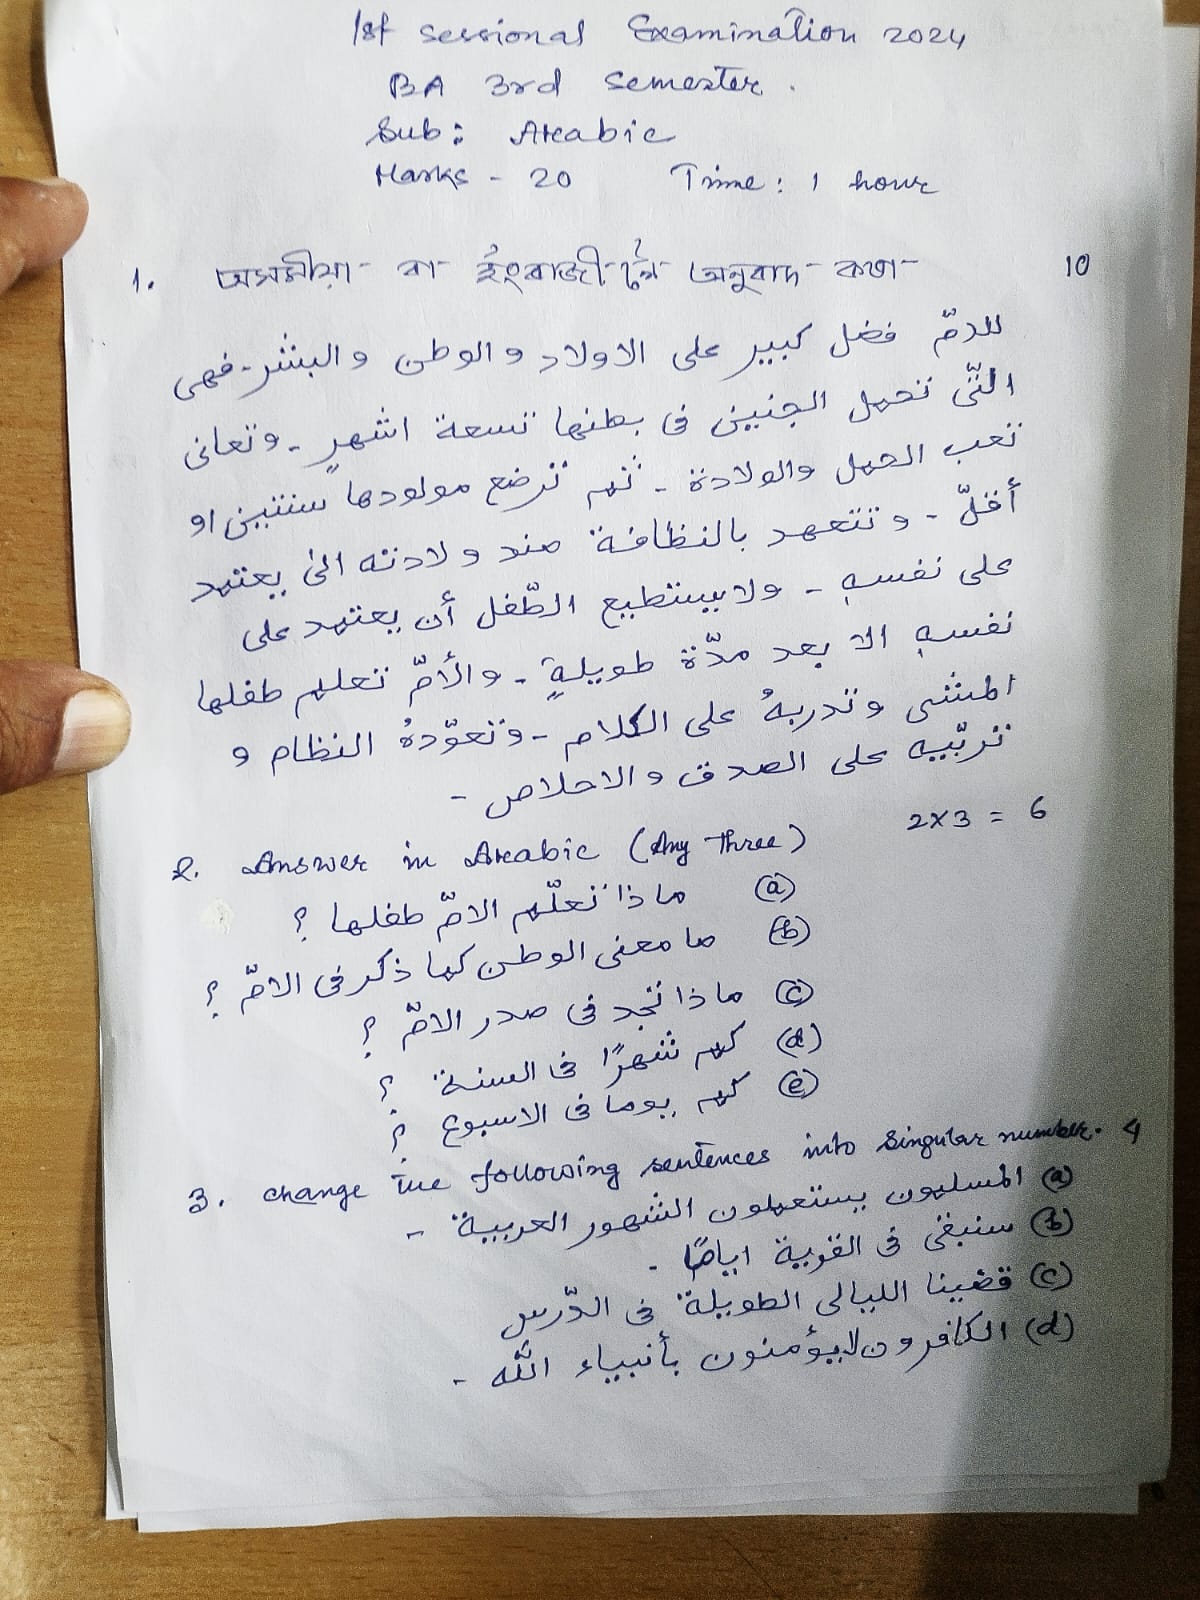 1st Sessional Examination 2024
BA 3rd Semester.
Sub: Arabic
Marks - 20 Time: 1 hour
1. অসমীয়া বা ইংৰাজীলৈ অনুবাদ কৰা 10
للامّ فضل كبير على الاولاد والوطن والبشر - فهى
الّتى تحمل الجنين فى بطنها تسعة اشهرٍ - وتعانى
تعب الحمل والولادة - ثم ترضع مولودها سنتين او
أقلّ - وتتعهد بالنظافة منذ ولادته الى يعتمد
على نفسهِ - ولا يستطيع الطّفل أن يعتمد على
نفسهِ الا بعد مدّة طويلةٍ - والأمّ تعلم طفلها
المشى وتدربهُ على الكلام - وتعوّدهُ النظام و
تربّيه على الصدق والاخلاص -
2. Answer in Arabic (Any Three) 2x3 = 6
(a) ماذا تعلّم الامّ طفلها ؟
(b) ما معنى الوطن كما ذكر فى الامّ ؟
(c) ماذا تجد فى صدر الامّ ؟
(d) كم شهرًا فى السنة ؟
(e) كم يوما فى الاسبوع ؟
3. Change the following sentences into Singular number. 4
(a) المسلمون يستعملون الشهور العربية -
(b) سنبقى فى القرية ايامًا -
(c) قضينا الليالى الطويلة فى الدّرس
(d) الكافرون لا يؤمنون بأنبياء اللّٰه -